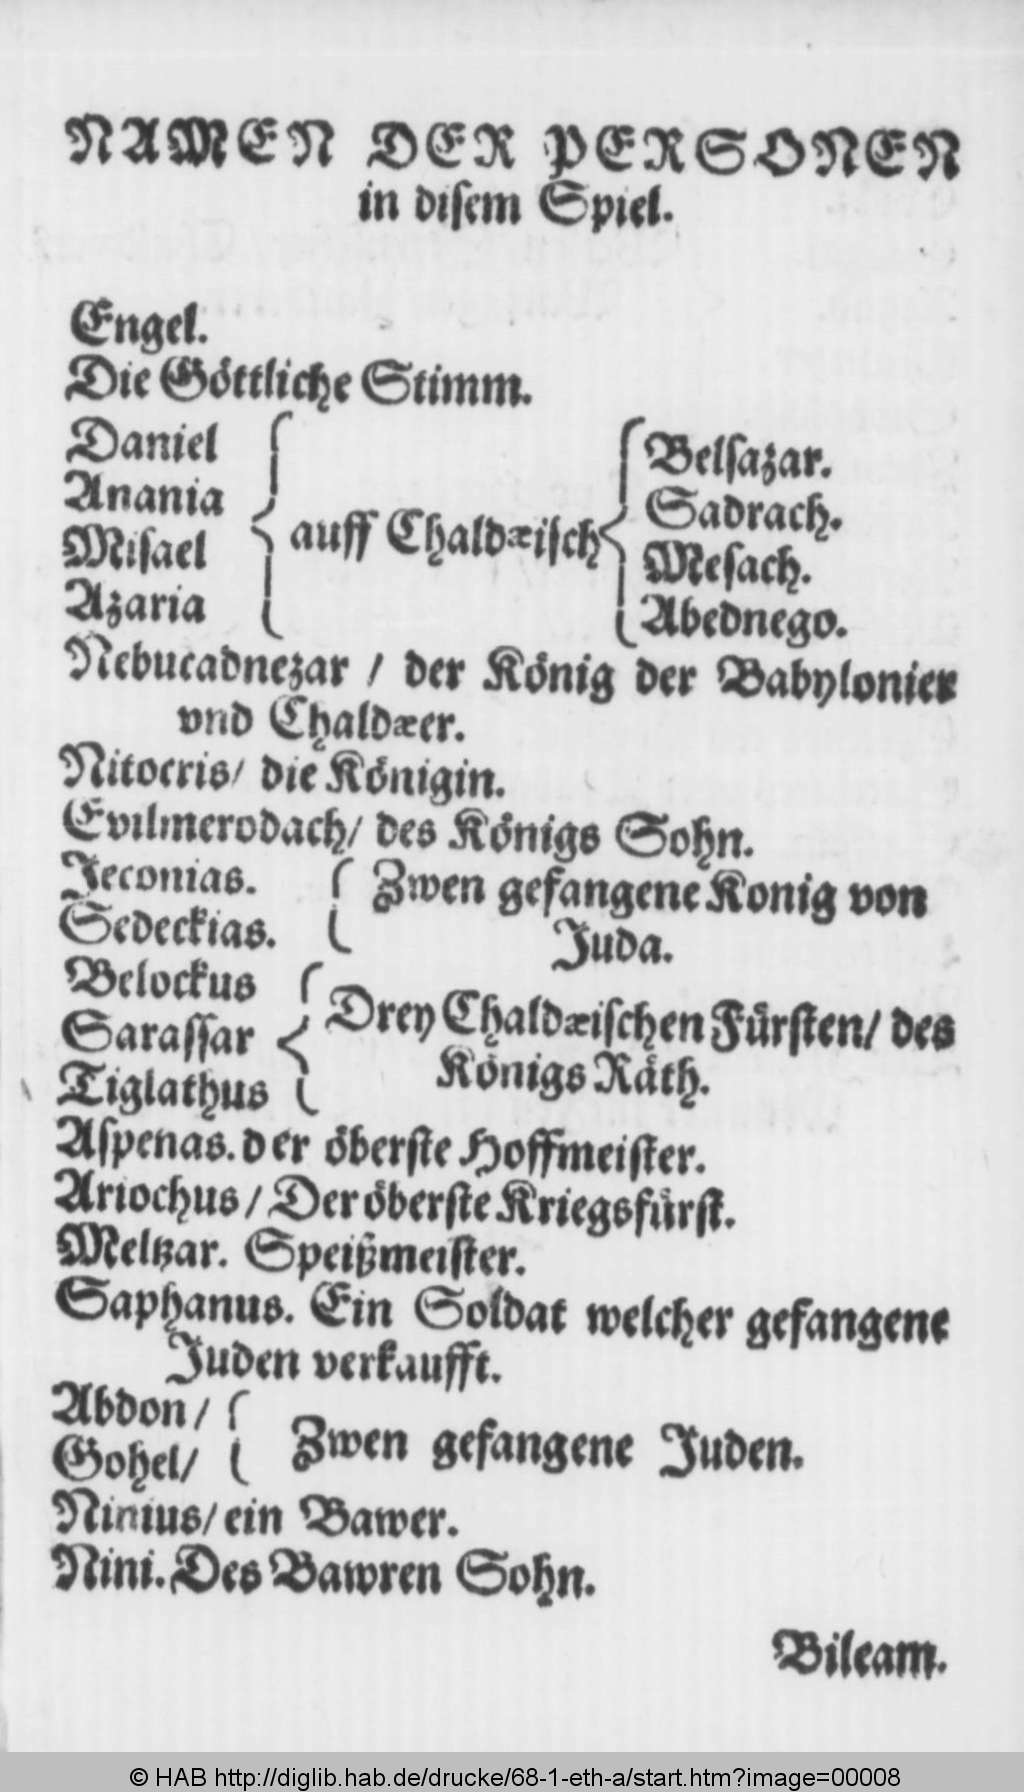 NAMEN DER PERSONEN
in disem Spiel.
Engel.
Die Göttliche Stimm.
Daniel
Anania
Misael
Azaria
auff Chaldæisch
Belsazar.
Sadrach.
Mesach.
Abednego.
Nebucadnezar / der König der Babylonier
vnd Chaldæer.
Nitocris/ die Königin.
Evilmerodach/ des Königs Sohn.
Jeconias.
Sedeckias.
Zwen gefangene Konig von
Juda.
Belockus
Sarassar
Tiglathus
Drey Chaldæischen Fürsten/ des
Königs Räth.
Aspenas. der öberste Hoffmeister.
Ariochus / Der öberste Kriegsfürst.
Meltzar. Speißmeister.
Saphanus. Ein Soldat welcher gefangene
Juden verkaufft.
Abdon /
Gohel/
Zwen gefangene Juden.
Ninius/ ein Bawer.
Nini. Des Bawren Sohn.
Bileam.
© HAB http://diglib.hab.de/drucke/68-1-eth-a/start.htm?image=00008